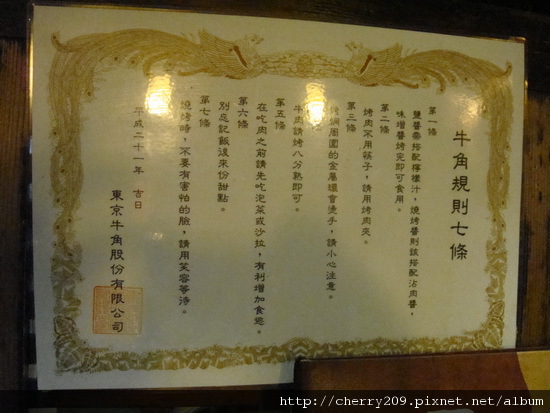 牛角規則七條
第一條
鹽醬需搭配檸檬汁，燒烤醬則該搭配沾肉醬，
味增醬烤完即可食用。
第二條
烤肉不用筷子，請用烤肉夾。
第三條
烤網周圍的金屬環會燙手，請小心注意。
牛肉請烤八分熟即可。
第五條
在吃肉之前請先吃泡菜或沙拉，有利增加食慾。
第六條
別忘記飯後來份甜點。
第七條
燒烤時，不要有害怕的臉，請用笑容等待。
平成二十一年 吉日
東京牛角股份有限公司
http://cherry209.pixnet.net/album